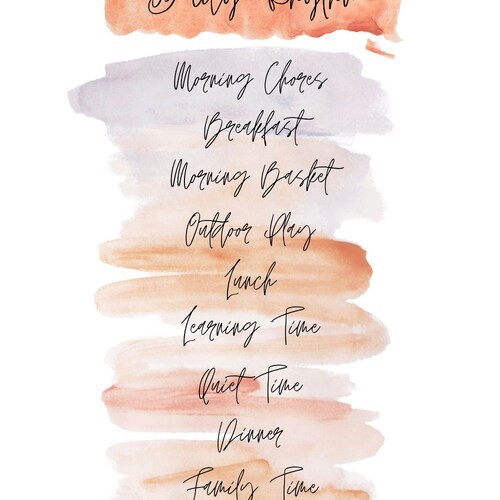 Daily Rhythm
Morning Chores
Breakfast
Morning Basket
Outdoor Play
Lunch
Learning Time
Quiet Time
Dinner
Family Time